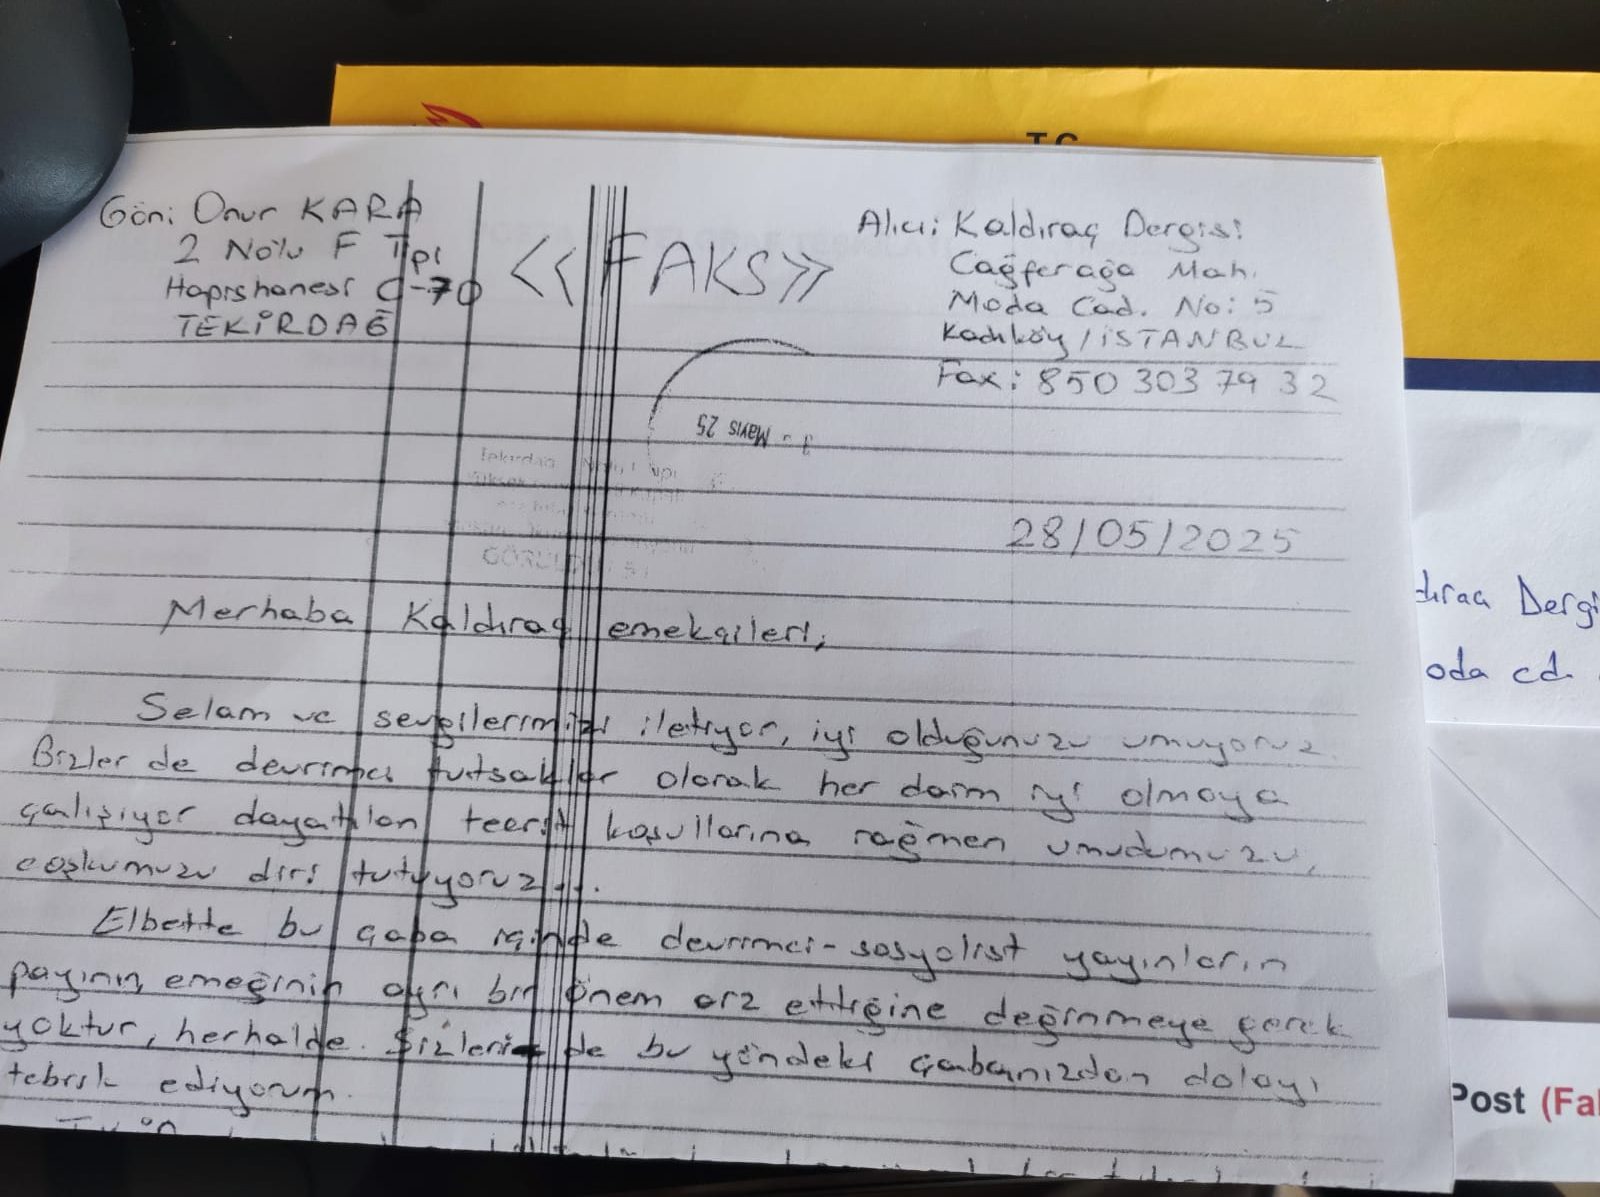 T.C.
Gön: Onur KARA
2 No'lu F Tipi
Hapishanesi C-70
TEKİRDAĞ
<<FAKS>>
Alıcı: Kaldıraç Dergisi
Caferağa Mah.
Moda Cad. No: 5
Kadıköy / İSTANBUL
Fax: 850 303 79 32
- Mayıs 25
Tekirdağ
GÖRÜLDÜ
28/05/2025
Merhaba Kaldıraç emekçileri,
Selam ve sevgilerimizi iletiyor, iyi olduğunuzu umuyoruz.
Bizler de devrimci tutsaklar olarak her daim iyi olmaya
çalışıyor dayatılan tecrit koşullarına rağmen umudumuzu,
coşkumuzu diri tutuyoruz...
Elbette bu çaba içinde devrimci-sosyalist yayınların
payının, emeğinin ayrı bir önem arz ettiğine değinmeye gerek
yoktur, herhalde. Sizleri de bu yöndeki çabanızdan dolayı
tebrik ediyorum.
dıraç Dergi
oda cd.
Post (Fa